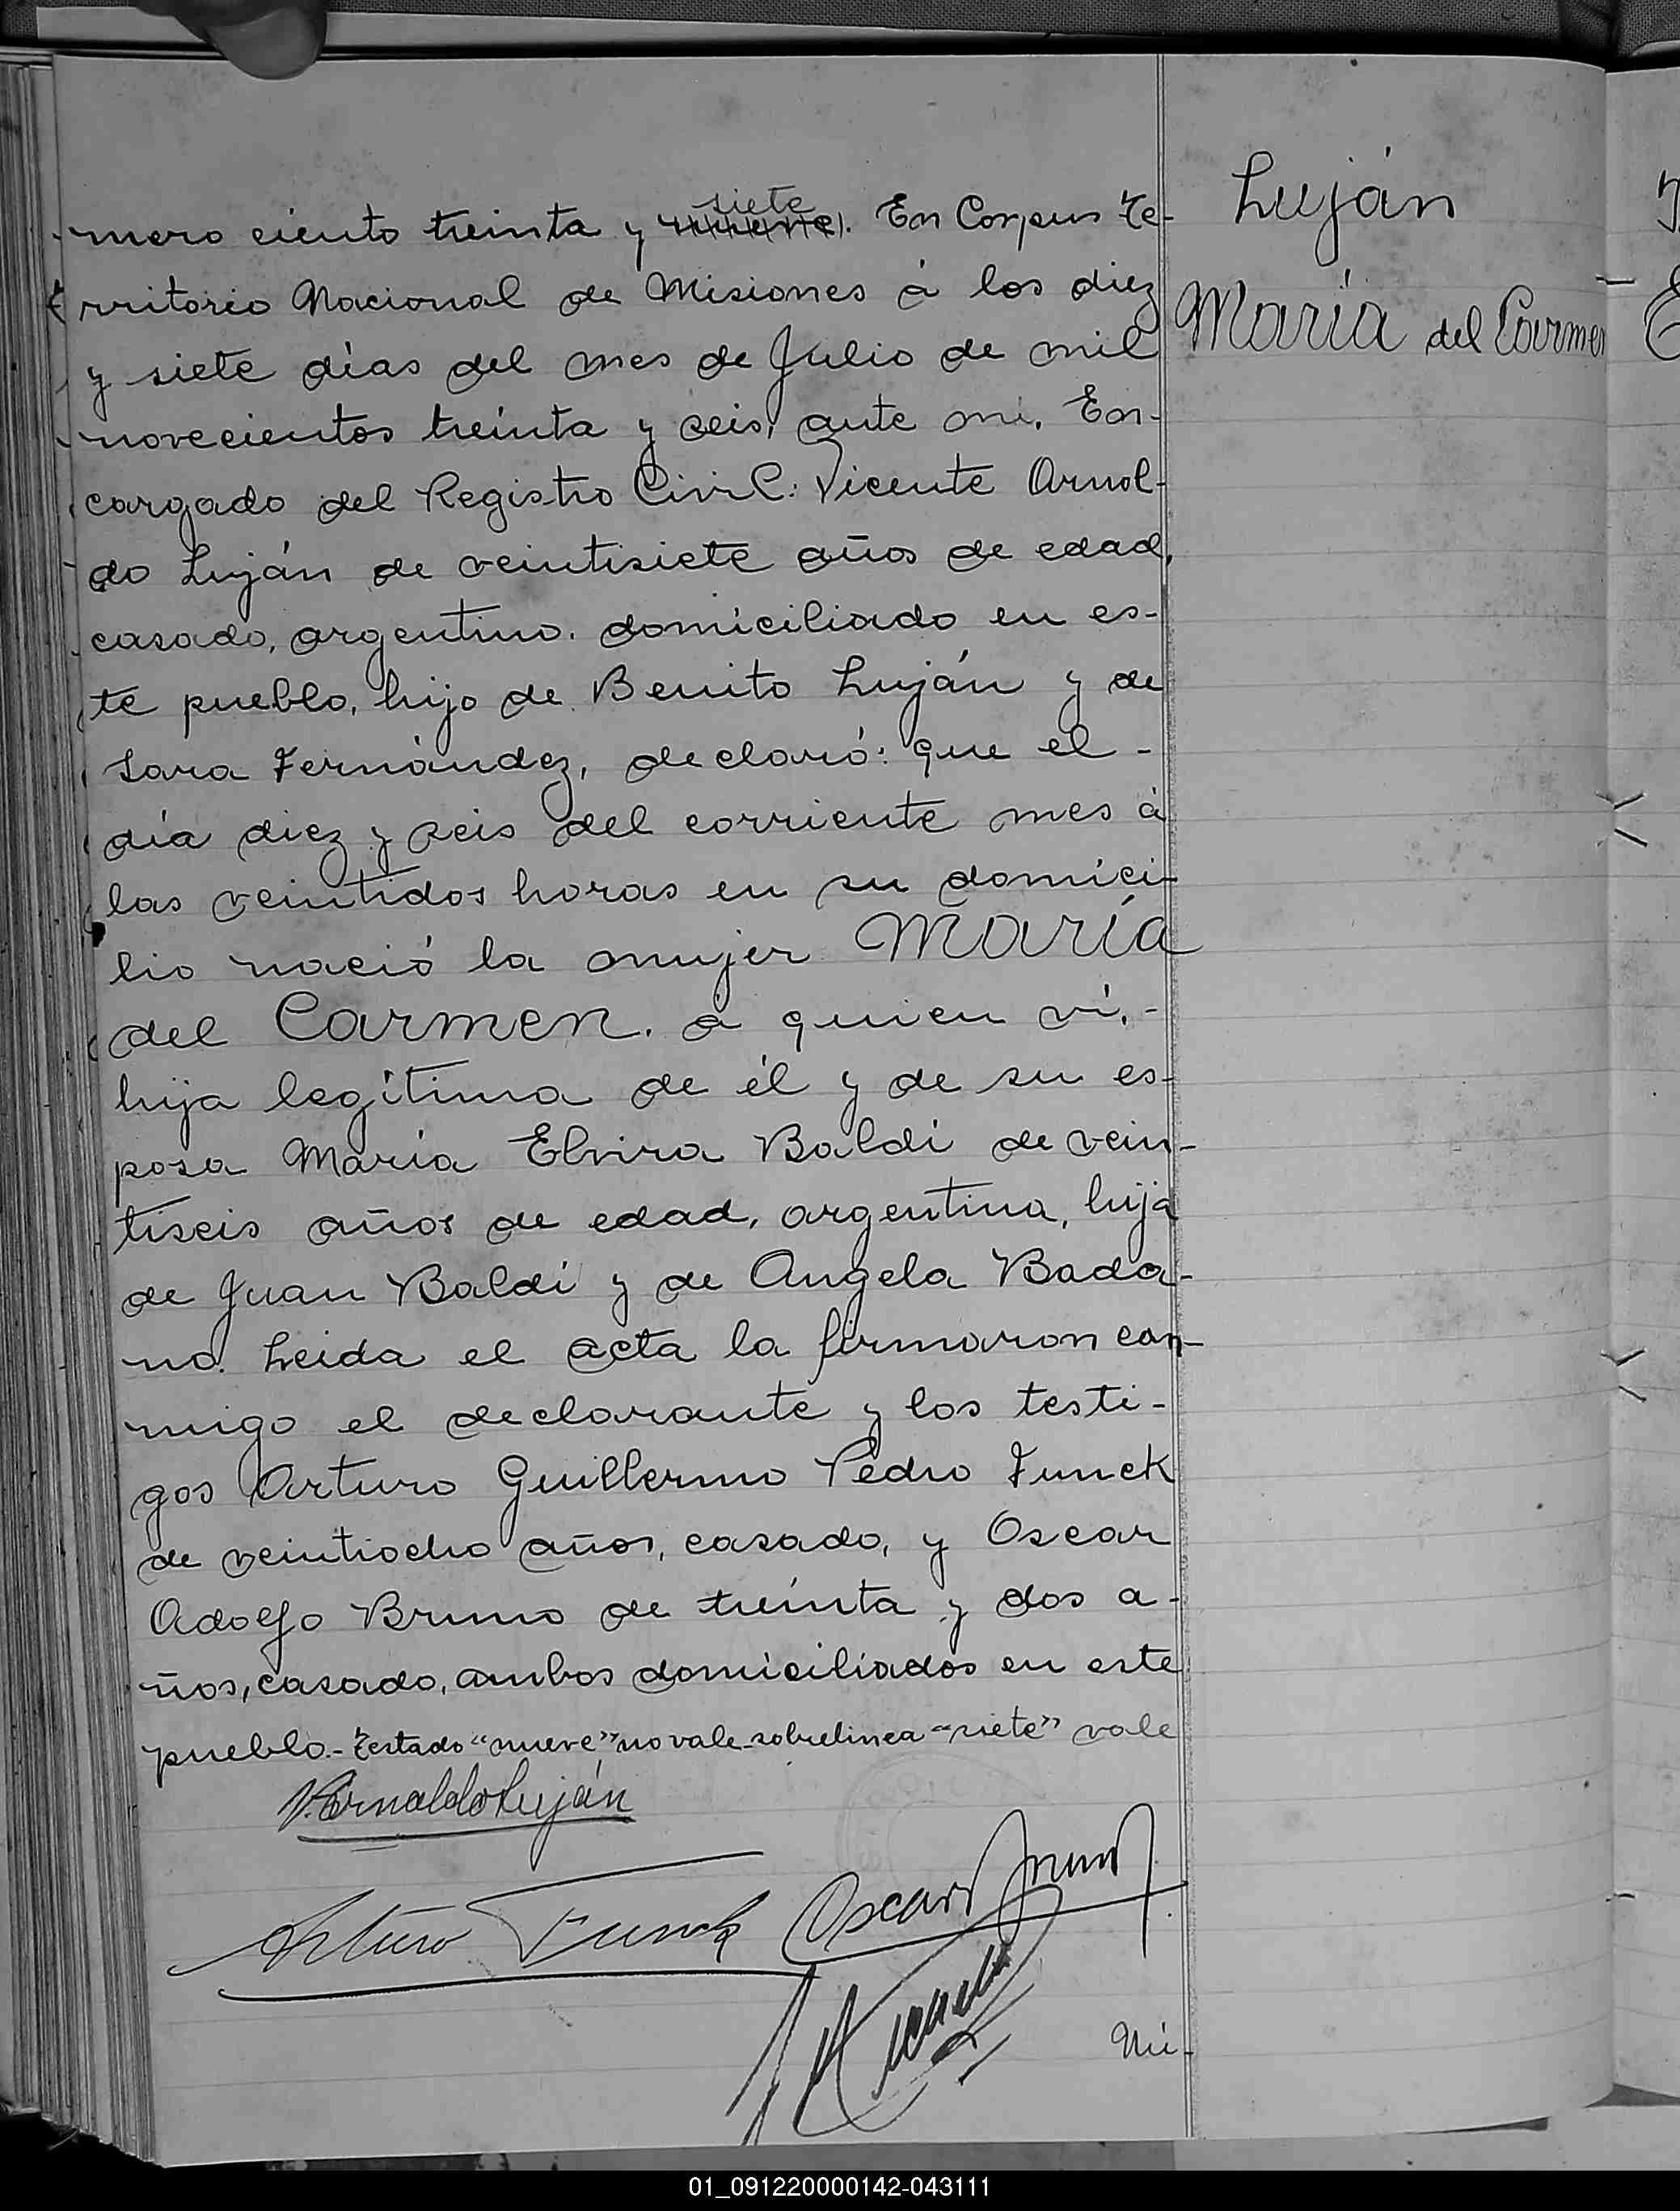 mero ciento treinta y nueve siete. En Corpus Te-
rritorio Nacional de Misiones á los diez
y siete días del mes de Julio de mil
novecientos treinta y seis, ante mí, En-
cargado del Registro Civil: Vicente Arnol-
do Luján de veintisiete años de edad,
casado, argentino, domiciliado en es-
te pueblo, hijo de Benito Luján y de
Sara Fernández, declaró: que el -
día diez y seis del corriente mes á
las veintidos horas en su domici-
lio nació la mujer María
del Carmen, á quien ví, -
hija legítima de él y de su es-
posa María Elvira Baldi de vein-
tiseis años de edad, argentina, hija
de Juan Baldi y de Angela Bada-
no. Leida el acta la firmaron con-
migo el declarante y los testi-
gos Arturo Guillermo Pedro Funck
de veintiocho años, casado, y Oscar
Adolfo Bruno de treinta y dos a-
ños, casado, ambos domiciliados en este
pueblo.- Testado "nueve" no vale - sobrelinea "siete" vale
V. Arnoldo Luján
Arturo Funck Oscar Bruno
Nú-
Luján
María del Carmen
01_091220000142-043111